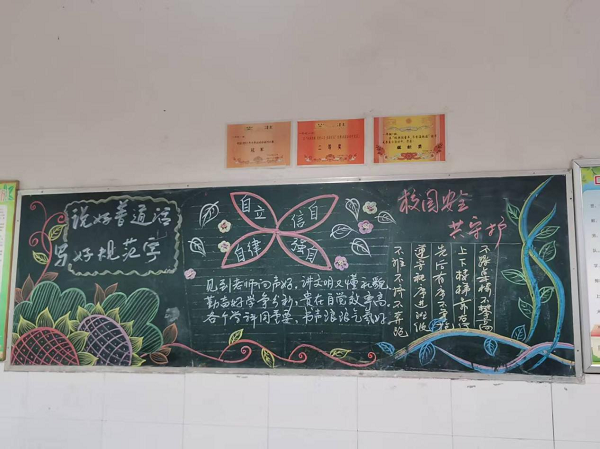 二等奖
说好普通话
写好规范字
自立
信自
自律
强自
见到老师问声好，讲文明又懂礼貌
勤为好学争分秒，贵在自觉效率高
各个学科同重要，书声浪浪气氛好
校园安全
共守护
不攀
上下楼梯靠右
先后有序不
遵守秩序进班级
不推不挤不奔跑